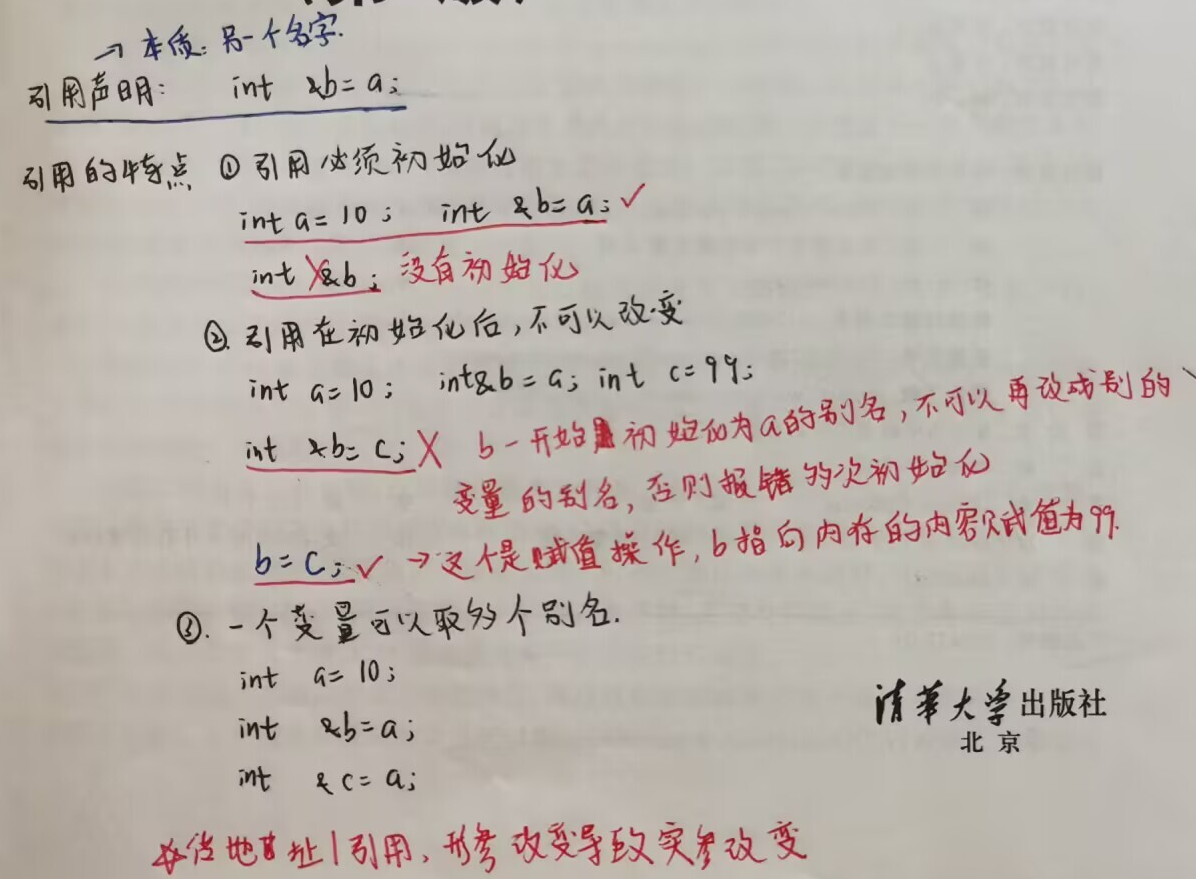 → 本质：另一个名字.
引用声明： int &b= a;
引用的特点 ① 引用必须初始化
int a= 10; int &b= a; ✓
int &b; 没有初始化
② 引用在初始化后，不可以改变
int a=10; int&b=a; int c=99;
int &b= c; X b一开始初始化为a的别名，不可以再改成别的
变量的别名，否则报错多次初始化
b=c; ✓ →这个是赋值操作，b指向内存的内容赋值为99.
③. 一个变量可以取多个别名.
int a= 10;
int &b=a;
int & c= a;
清华大学出版社
北京
传地址/引用，形参改变导致实参改变